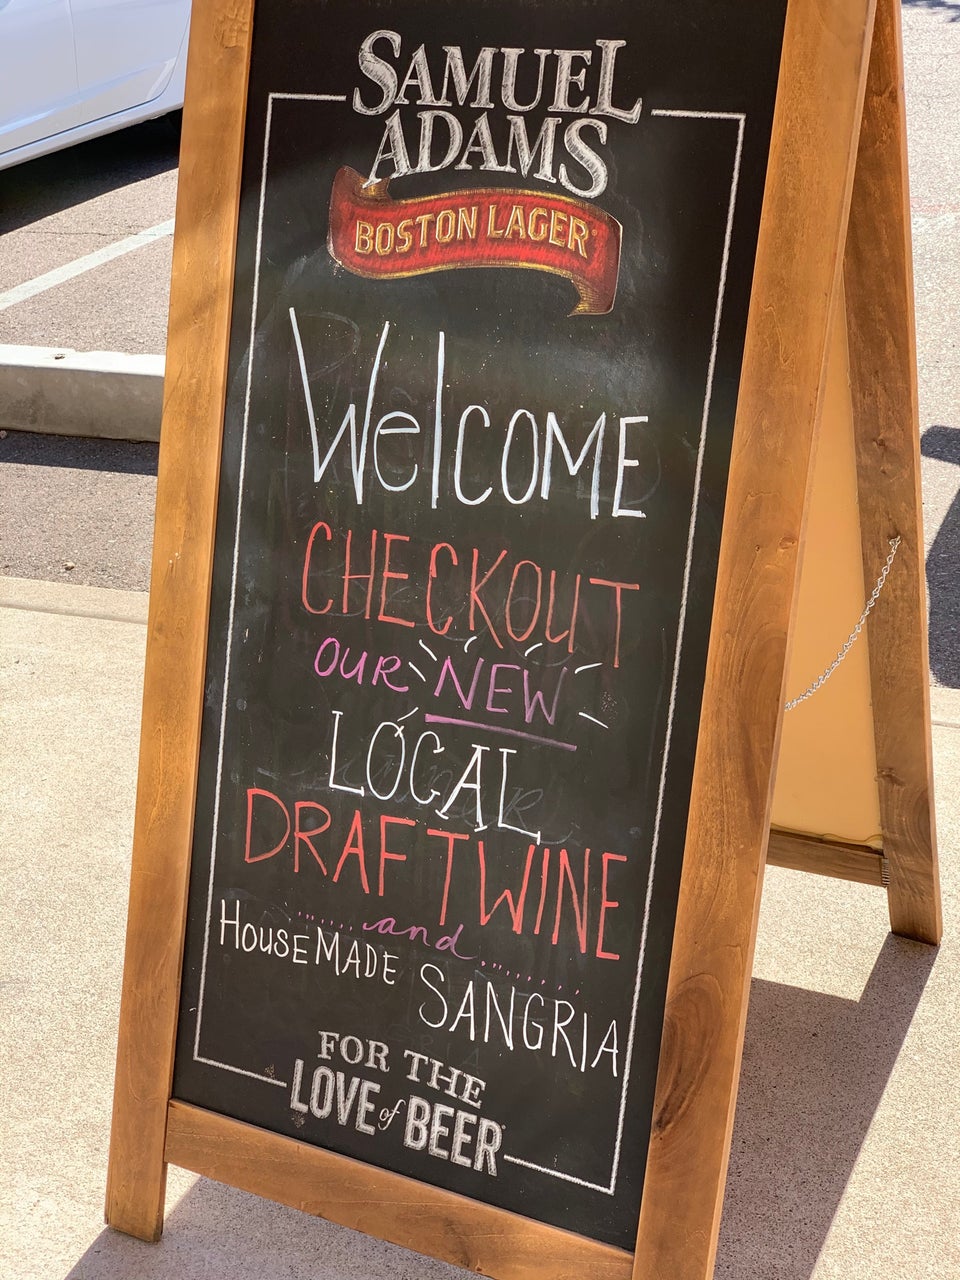 SAMUEL
ADAMS
BOSTON LAGER
WelcOME
CHECKOUT
OUR NEW
LOCAL
DRAFT WINE
and
HouSEMADE SANGRIA
FOR THE
LOVE of BEER